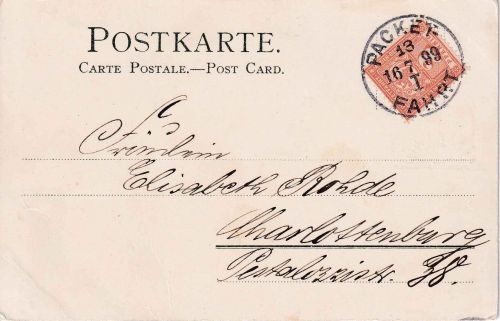 POSTKARTE.
CARTE POSTALE.—POST CARD.
PACKET-
13
16 7 99
I
FAHRT
Fräulein
Elisabeth Rohde
Charlottenburg
Pestalozzistr. 38.